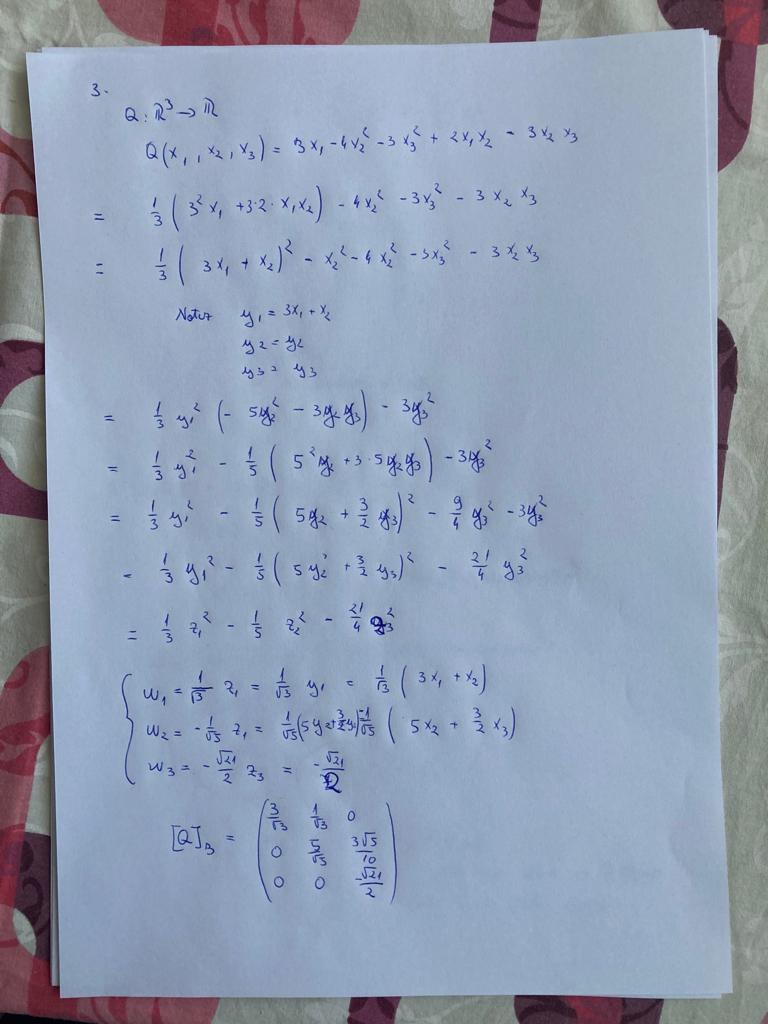 3.
Q : ℝ³ → ℝ
Q(x₁, x₂, x₃) = 3x₁ - 4x₂² - 3x₃² + 2x₁x₂ - 3x₂x₃
= 1/3 (3²x₁ + 3·2·x₁x₂) - 4x₂² - 3x₃² - 3x₂x₃
= 1/3 (3x₁ + x₂)² - x₂² - 4x₂² - 3x₃² - 3x₂x₃
y₁ = 3x₁ + x₂
y₂ = y₂
y₃ = y₃
= 1/3 y₁² (- 5y₂² - 3y₂y₃) - 3y₃²
= 1/3 y₁² - 1/5 (5²y₂ + 3·5y₂y₃) - 3y₃²
= 1/3 y₁² - 1/5 (5y₂ + 3/2 y₃)² - 9/4 y₃² - 3y₃²
= 1/3 y₁² - 1/5 (5y₂² + 3/2 y₃)² - 21/4 y₃²
= 1/3 z₁² - 1/5 z₂² - 21/4 z₃²
w₁ = 1/√3 z₁ = 1/√3 y₁ = 1/√3 (3x₁ + x₂)
w₂ = -1/√5 z₁ = 1/√5 (5y₂ + 3/2 y₃) -1/√5 (5x₂ + 3/2 x₃)
w₃ = -√21/2 z₃ = -√21/2
[Q]_B = ( 3/√3 1/√3 0
0 5/√5 3√5/10
0 0 -√21/2 )